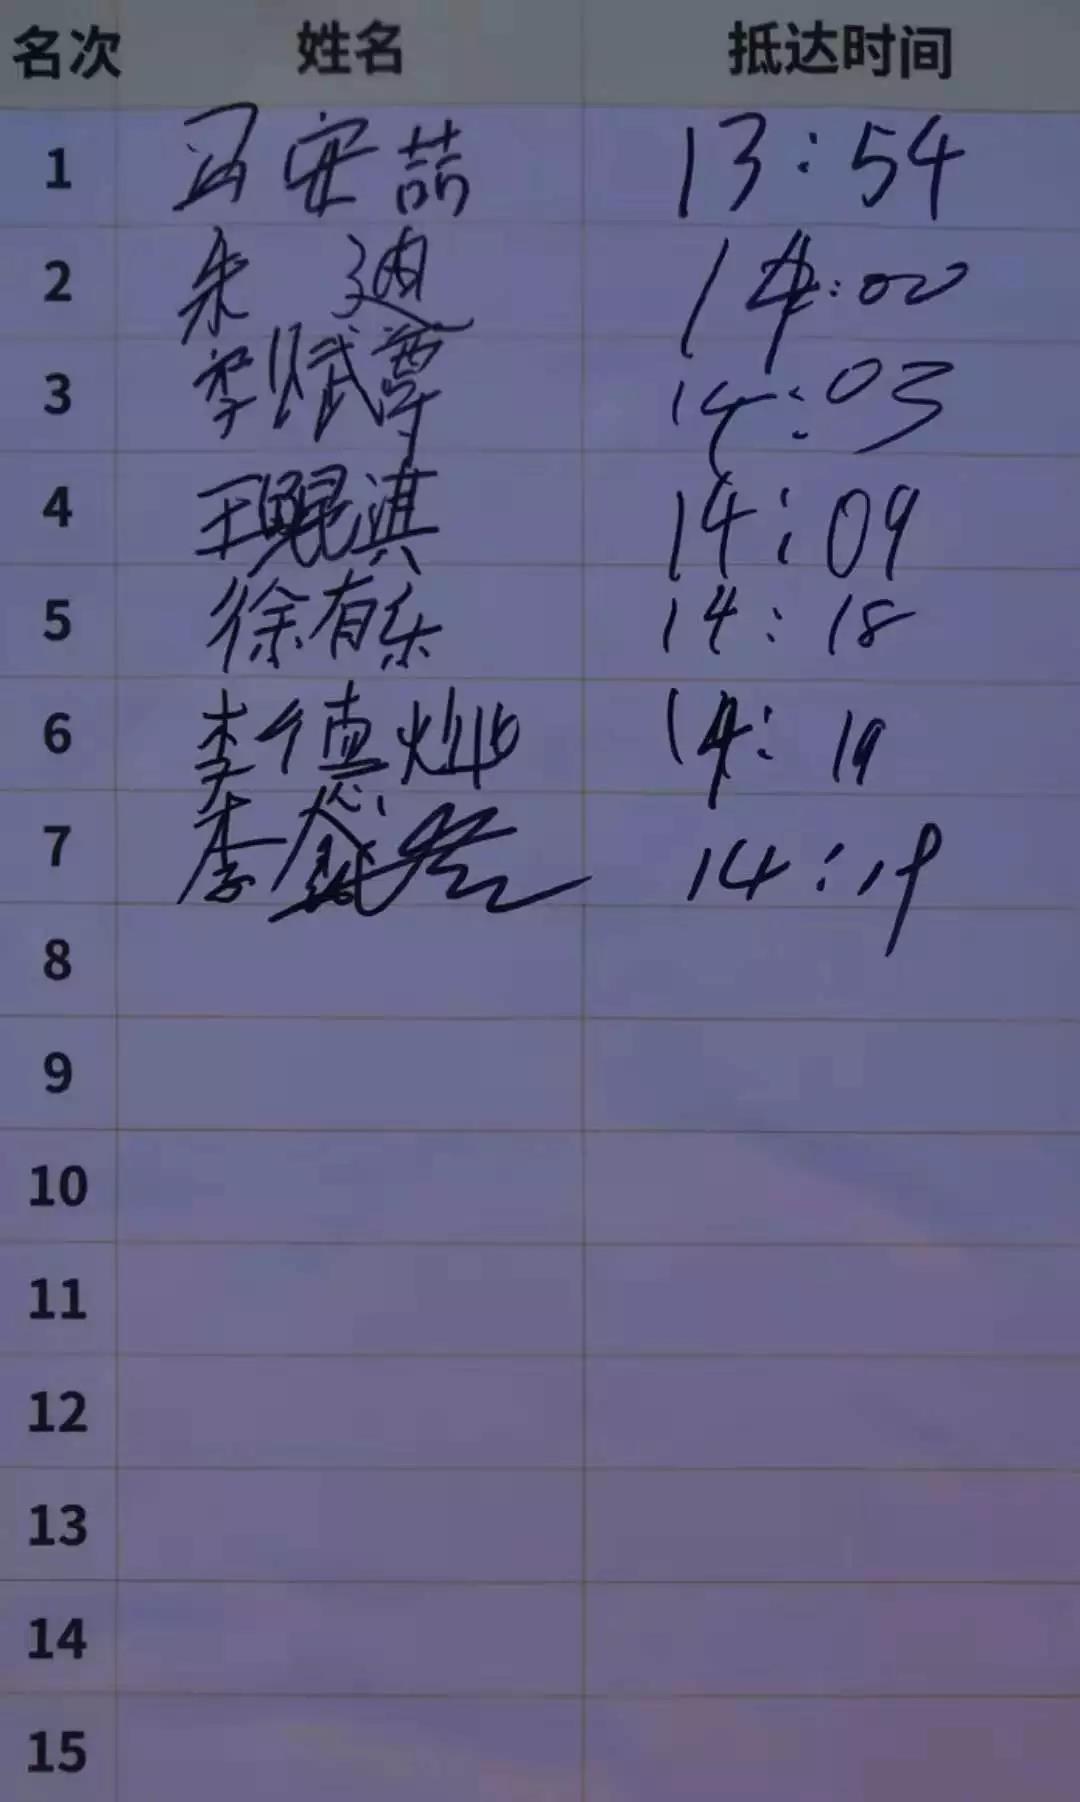 名次 姓名 抵达时间
1 安喆 13:54
2 朱迪 14:00
3 李斌尊 14:03
4 王鲲淇 14:09
5 徐有乐 14:18
6 李德灿 14:19
7 李 14:19
8
9
10
11
12
13
14
15